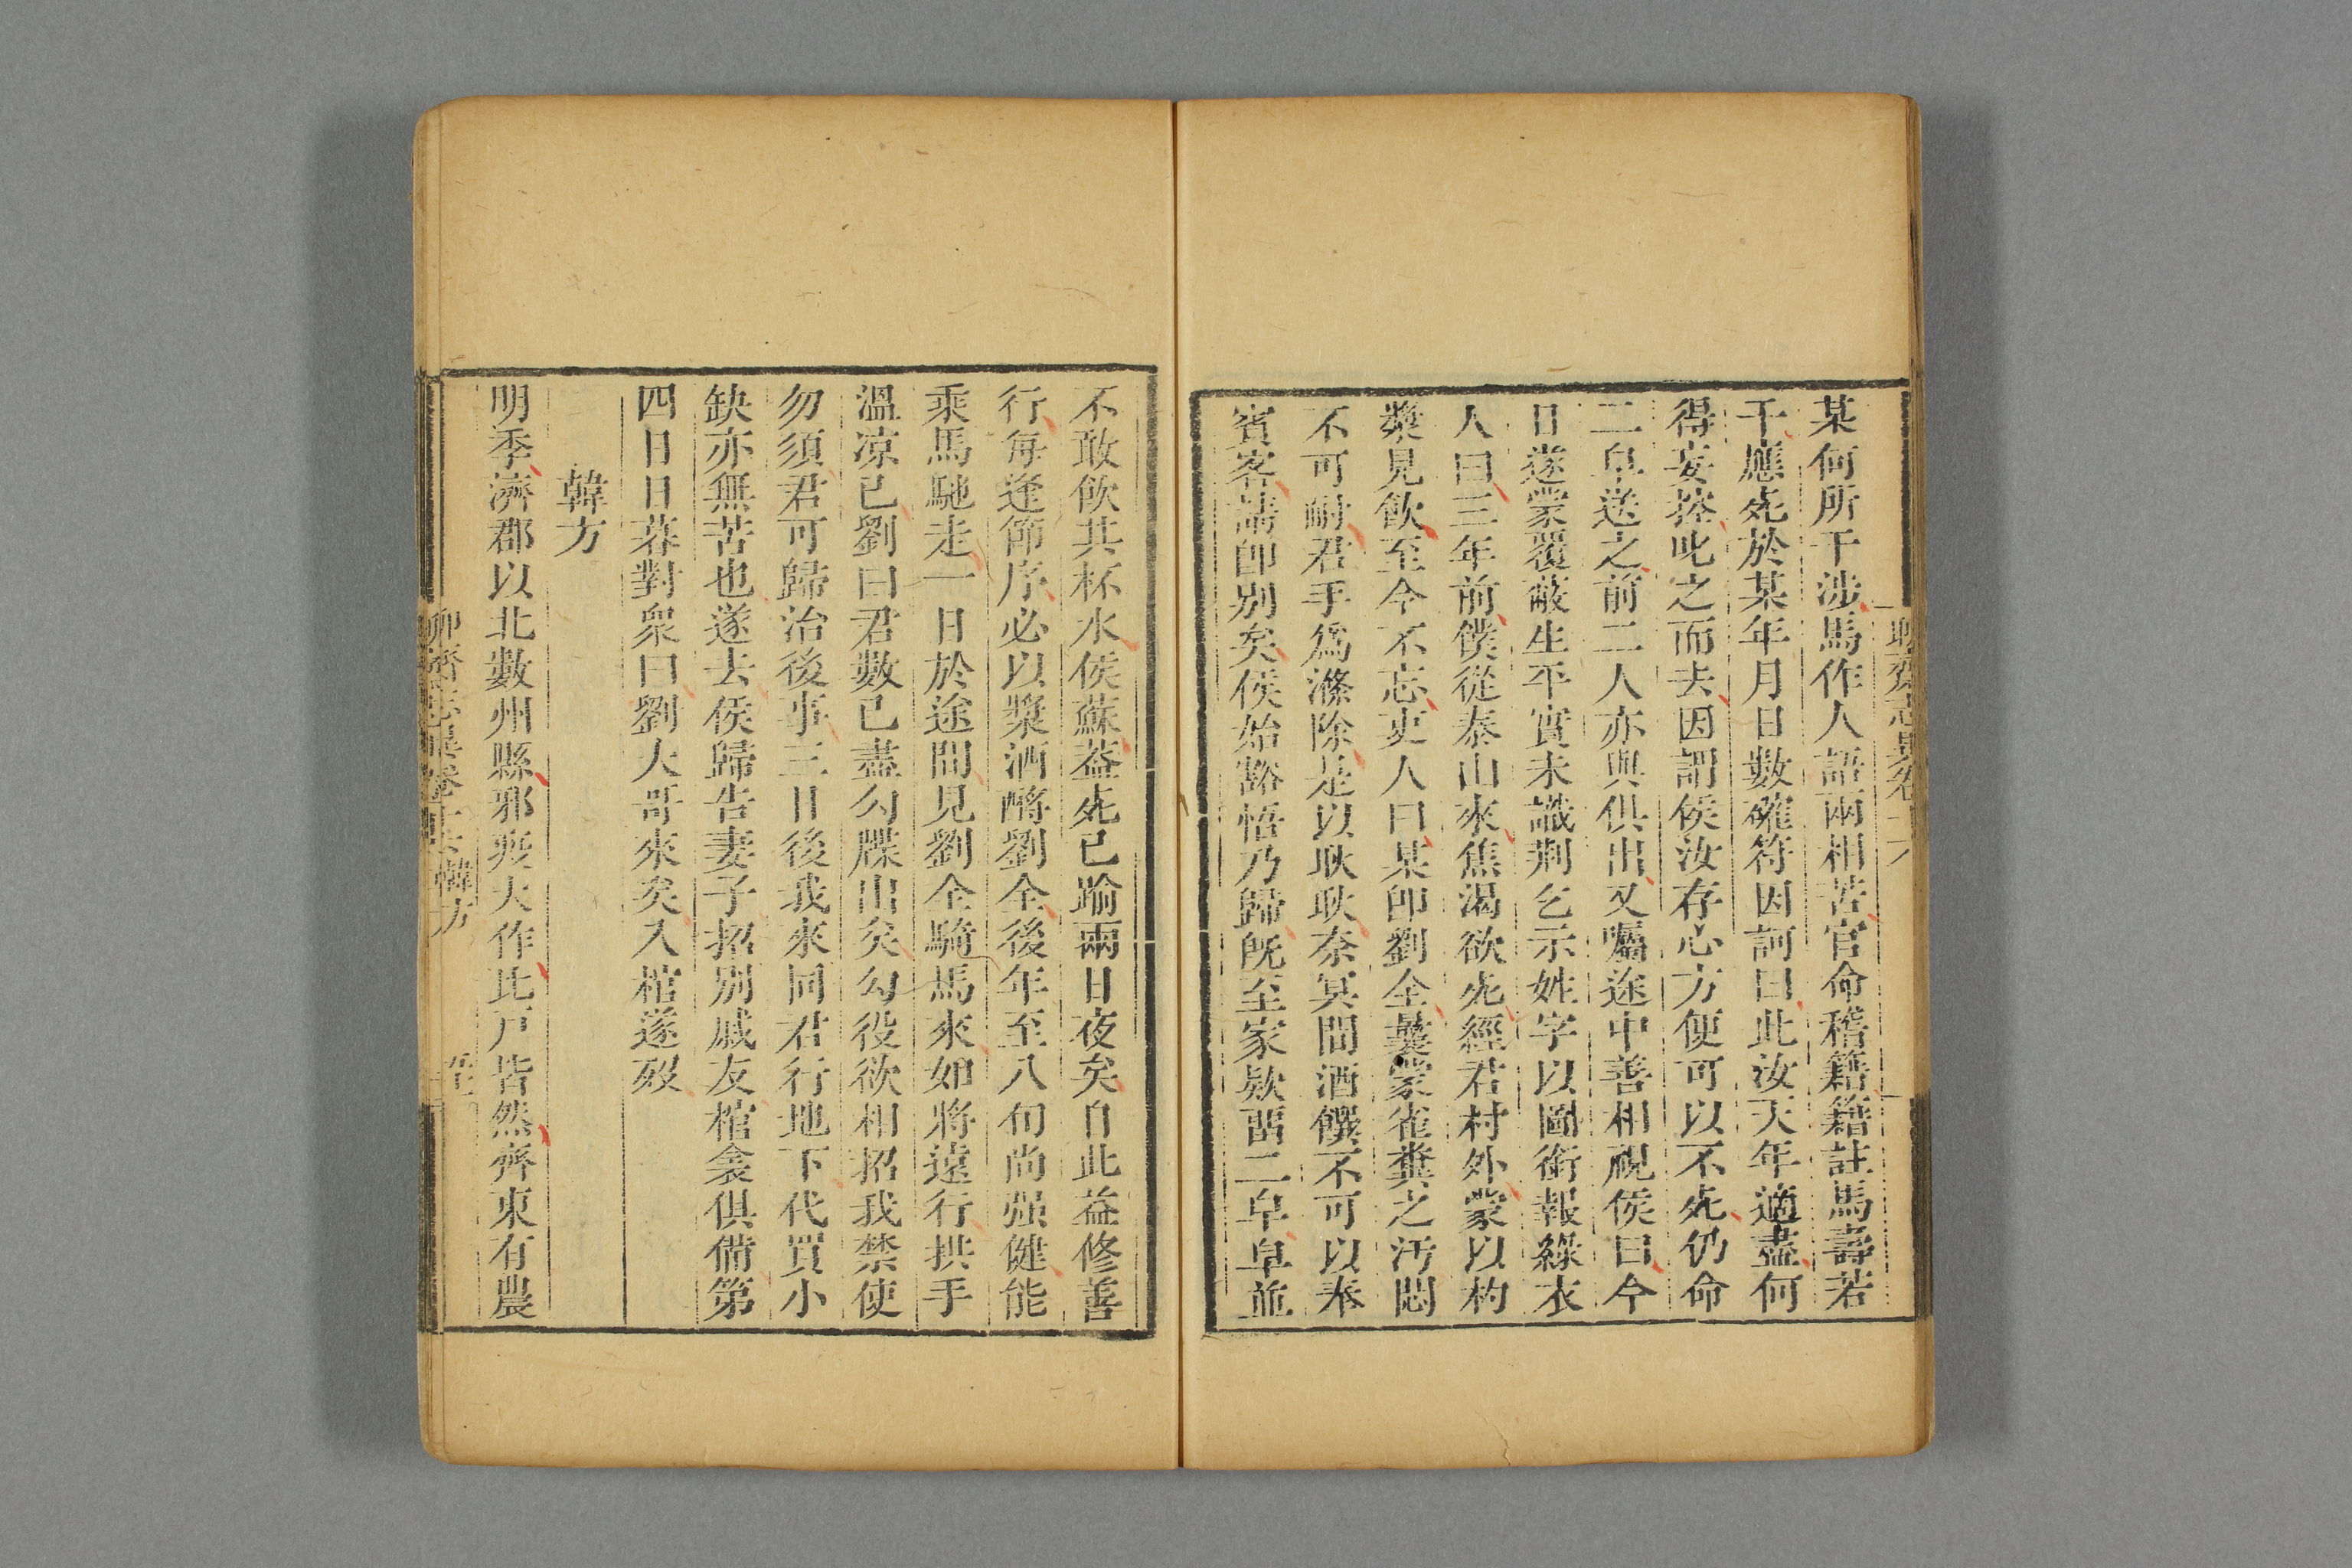 某何所干涉馬作人語兩相苦官命稽籍籍註馬壽若
干應死於某年月日數確符因訶曰此汝天年適盡何
得妄控叱之而去因謂侯汝存心方便可以不死仍命
二皁送之前二人亦與俱出又囑途中善相視侯曰今
日遂蒙覆蔽生平實未識荆乞示姓字以圖銜報綠衣
人曰三年前僕從泰山來焦渴欲死經君村外蒙以杓
漿見飲至今不忘吏人曰某卽劉全曩蒙雀糞之汚悶
不可耐君手爲滌除是以耿耿奈冥間酒饌不可以奉
賓客請卽别矣侯始豁悟乃歸既至家欵留二皁皁並
不敢飲其杯水侯蘇葢死已踰兩日夜矣自此益修善
行每逢節序必以漿酒酹劉全後年至八旬尚强健能
乘馬馳走一日於途間見劉全騎馬來如將遠行拱手
溫凉已劉曰君數已盡勾牒出矣勾役欲相招我禁使
勿須君可歸治後事三日後我來同君行地下代買小
缺亦無苦也遂去侯歸告妻子招別戚友棺衾俱備第
四日日暮對衆曰劉大哥來矣入棺遂歿
韓方
明季濟郡以北數州縣邪疫大作比戸皆然齊東有農
聊齋志異卷十六 韓方